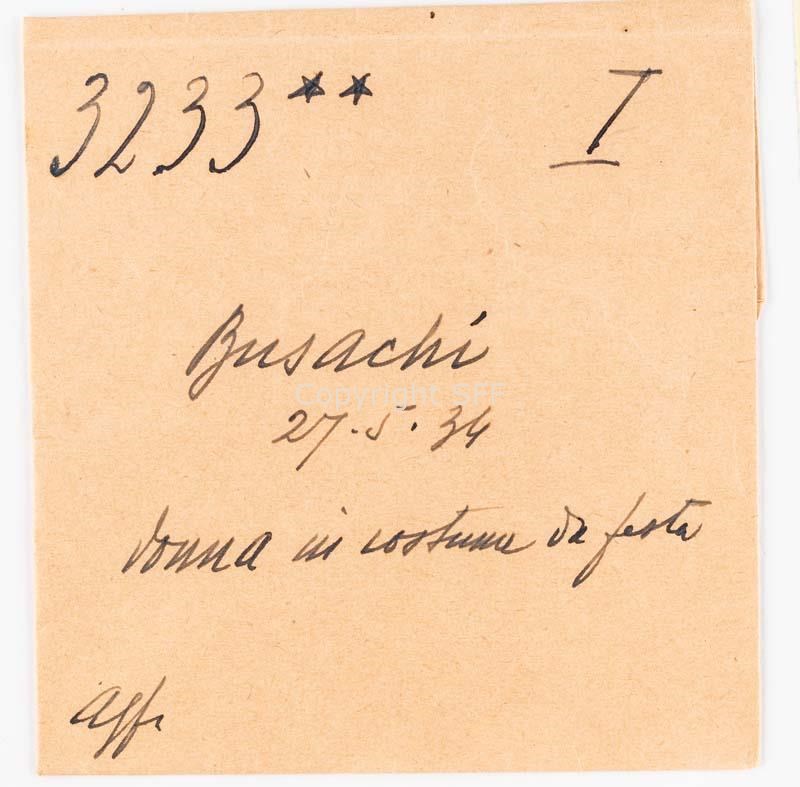 3233** I
Busachi
Copyright SFF
27.5.34
donna in costume da festa
Agfa